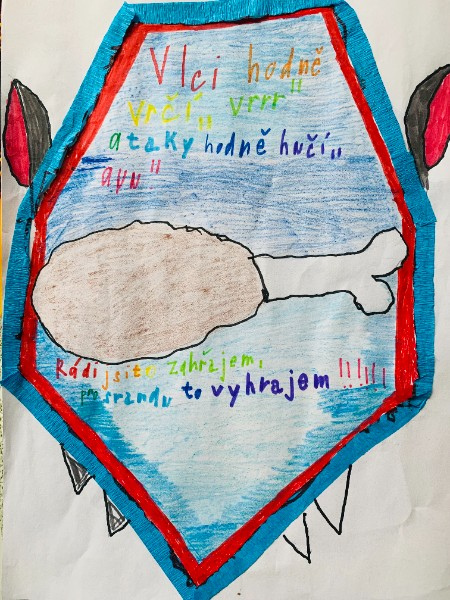 Vlci hodně
vrčí,, vrrr"
ataky hodně hučí,,
auu"
Rádi jsite zahřajem,
pro srandu to vyhrajem !!!!!!